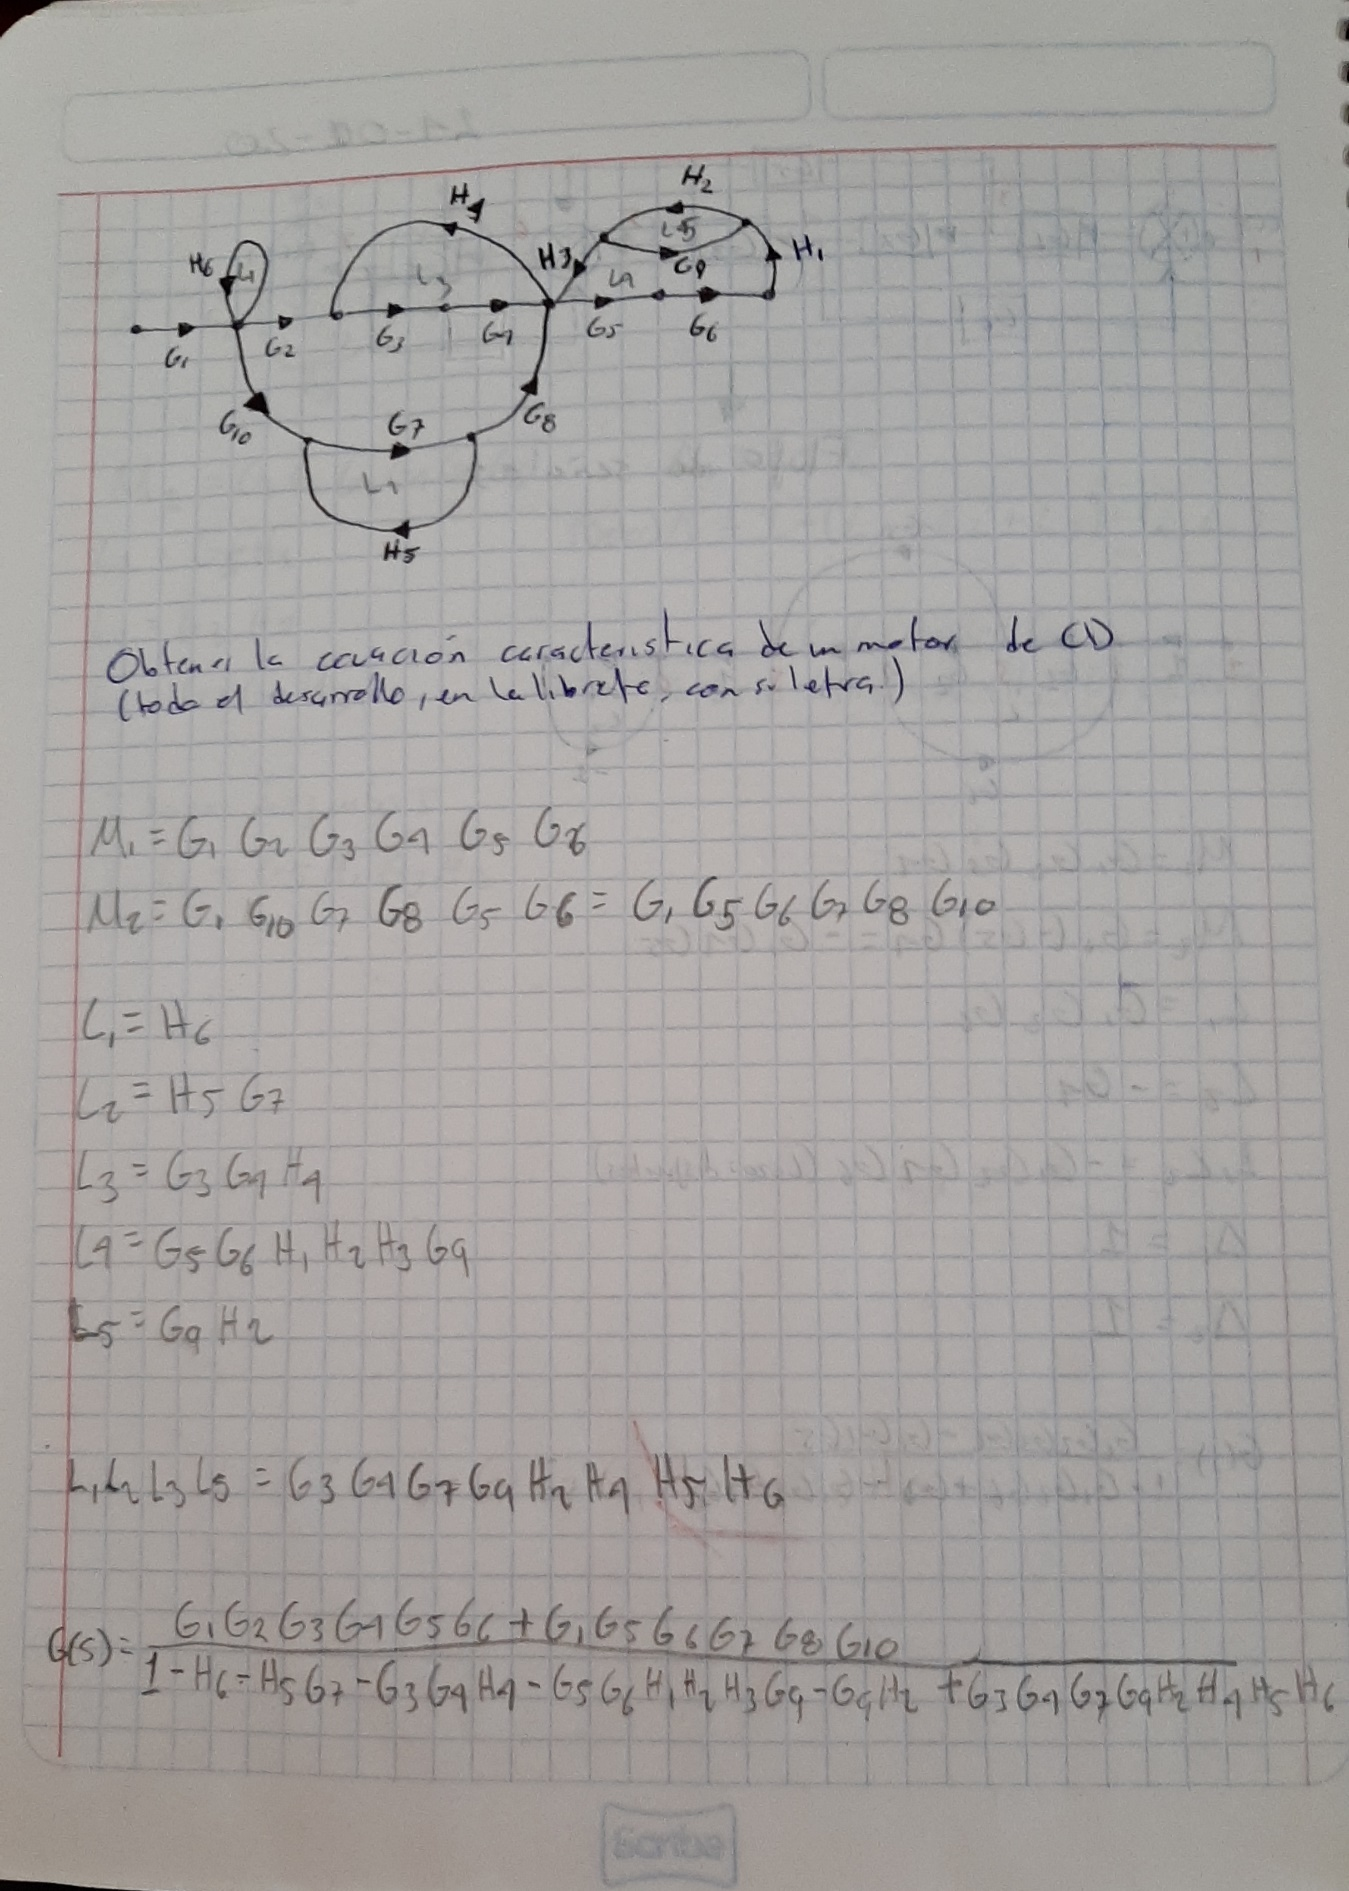 H4
H2
H6
L1
L3
H3
L5
G9
H1
L4
G1
G2
G3
G4
G5
G6
G10
G7
G8
L2
H5
Obtener la ecuación caracteristica de un motor de CD
(todo el desarrollo, en la libreta, con su letra.)
M1 = G1 G2 G3 G4 G5 G6
M2 = G1 G10 G7 G8 G5 G6 = G1 G5 G6 G7 G8 G10
L1 = H6
L2 = H5 G7
L3 = G3 G4 H4
L4 = G5 G6 H1 H2 H3 G9
L5 = G9 H2
L1 L2 L3 L5 = G3 G4 G7 G9 H2 H4 H5 H6
G(s) = G1 G2 G3 G4 G5 G6 + G1 G5 G6 G7 G8 G10
1 - H6 - H5 G7 - G3 G4 H4 - G5 G6 H1 H2 H3 G9 - G9 H2 + G3 G4 G7 G9 H2 H4 H5 H6
Scribe